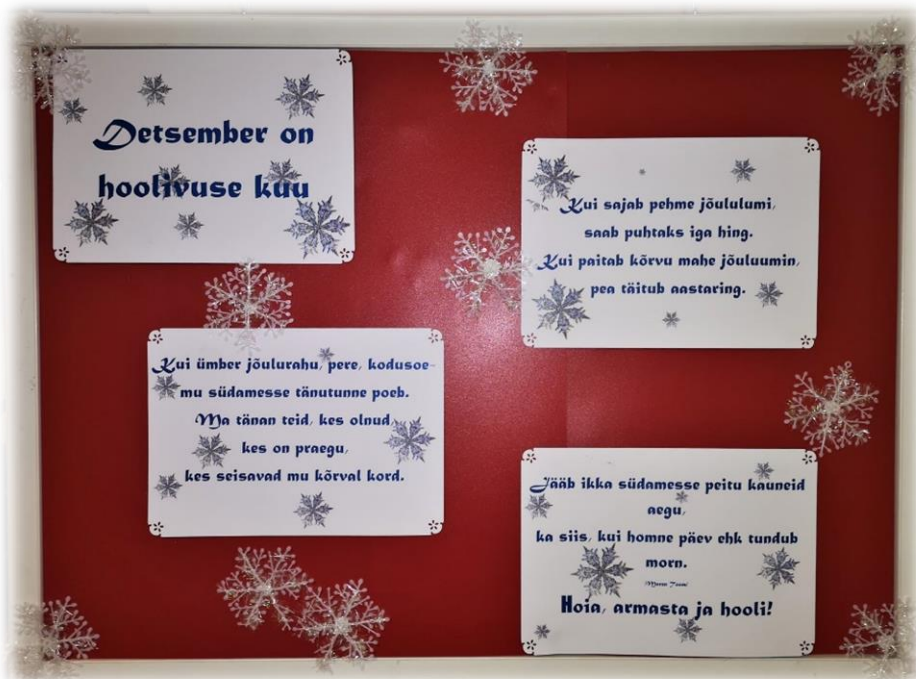 Detsember on
hoolivuse kuu
Kui sajab pehme jõululumi,
saab puhtaks iga hing.
Kui paitab kõrvu mahe jõuluumin,
pea täitub aastaring.
Kui ümber jõulurahu, pere, kodusoe-
mu südamesse tänutunne poeb.
Ma tänan teid, kes olnud,
kes on praegu,
kes seisavad mu kõrval kord.
Jääb ikka südamesse peitu kauneid
aegu,
ka siis, kui homne päev ehk tundub
morn.
Hoia, armasta ja hooli!